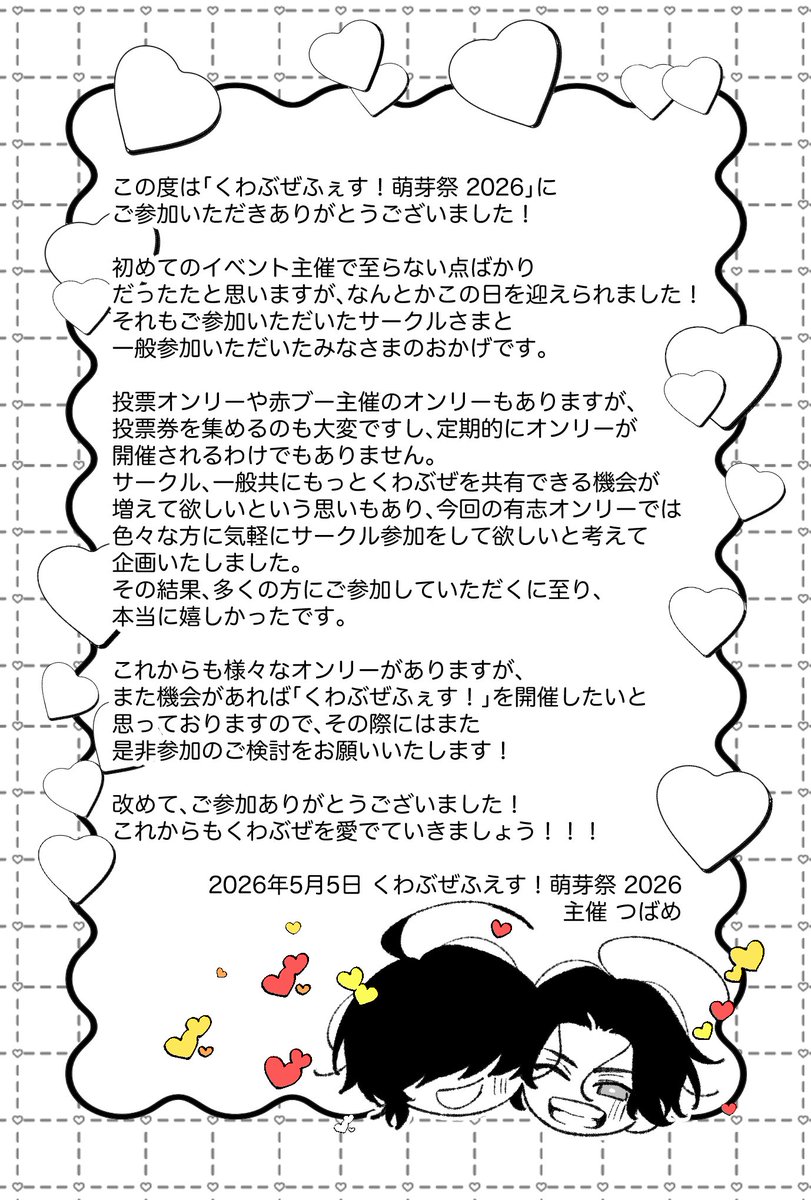 この度は「くわぶぜふぇす！萌芽祭 2026」に
ご参加いただきありがとうございました！
初めてのイベント主催で至らない点ばかり
だったたと思いますが､なんとかこの日を迎えられました！
それもご参加いただいたサークルさまと
一般参加いただいたみなさまのおかげです。
投票オンリーや赤ブー主催のオンリーもありますが、
投票券を集めるのも大変ですし､定期的にオンリーが
開催されるわけでもありません。
サークル､一般共にもっとくわぶぜを共有できる機会が
増えて欲しいという思いもあり､今回の有志オンリーでは
色々な方に気軽にサークル参加をして欲しいと考えて
企画いたしました。
その結果､多くの方にご参加していただくに至り、
本当に嬉しかったです。
これからも様々なオンリーがありますが、
また機会があれば「くわぶぜふぇす！」を開催したいと
思っておりますので､その際にはまた
是非参加のご検討をお願いいたします！
改めて､ご参加ありがとうございました！
これからもくわぶぜを愛でていきましょう！！！
2026年5月5日 くわぶぜふえす！萌芽祭 2026
主催 つばめ